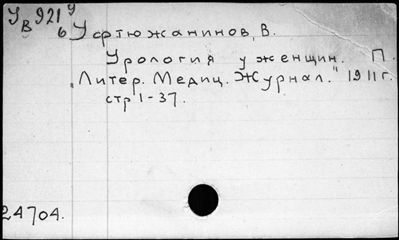 У 921 9
В б
Усртюжанинов, В.
Урология у женщин. П.
„Литер. Медиц. Журнал." 1911 г.
стр 1-37.
24704.